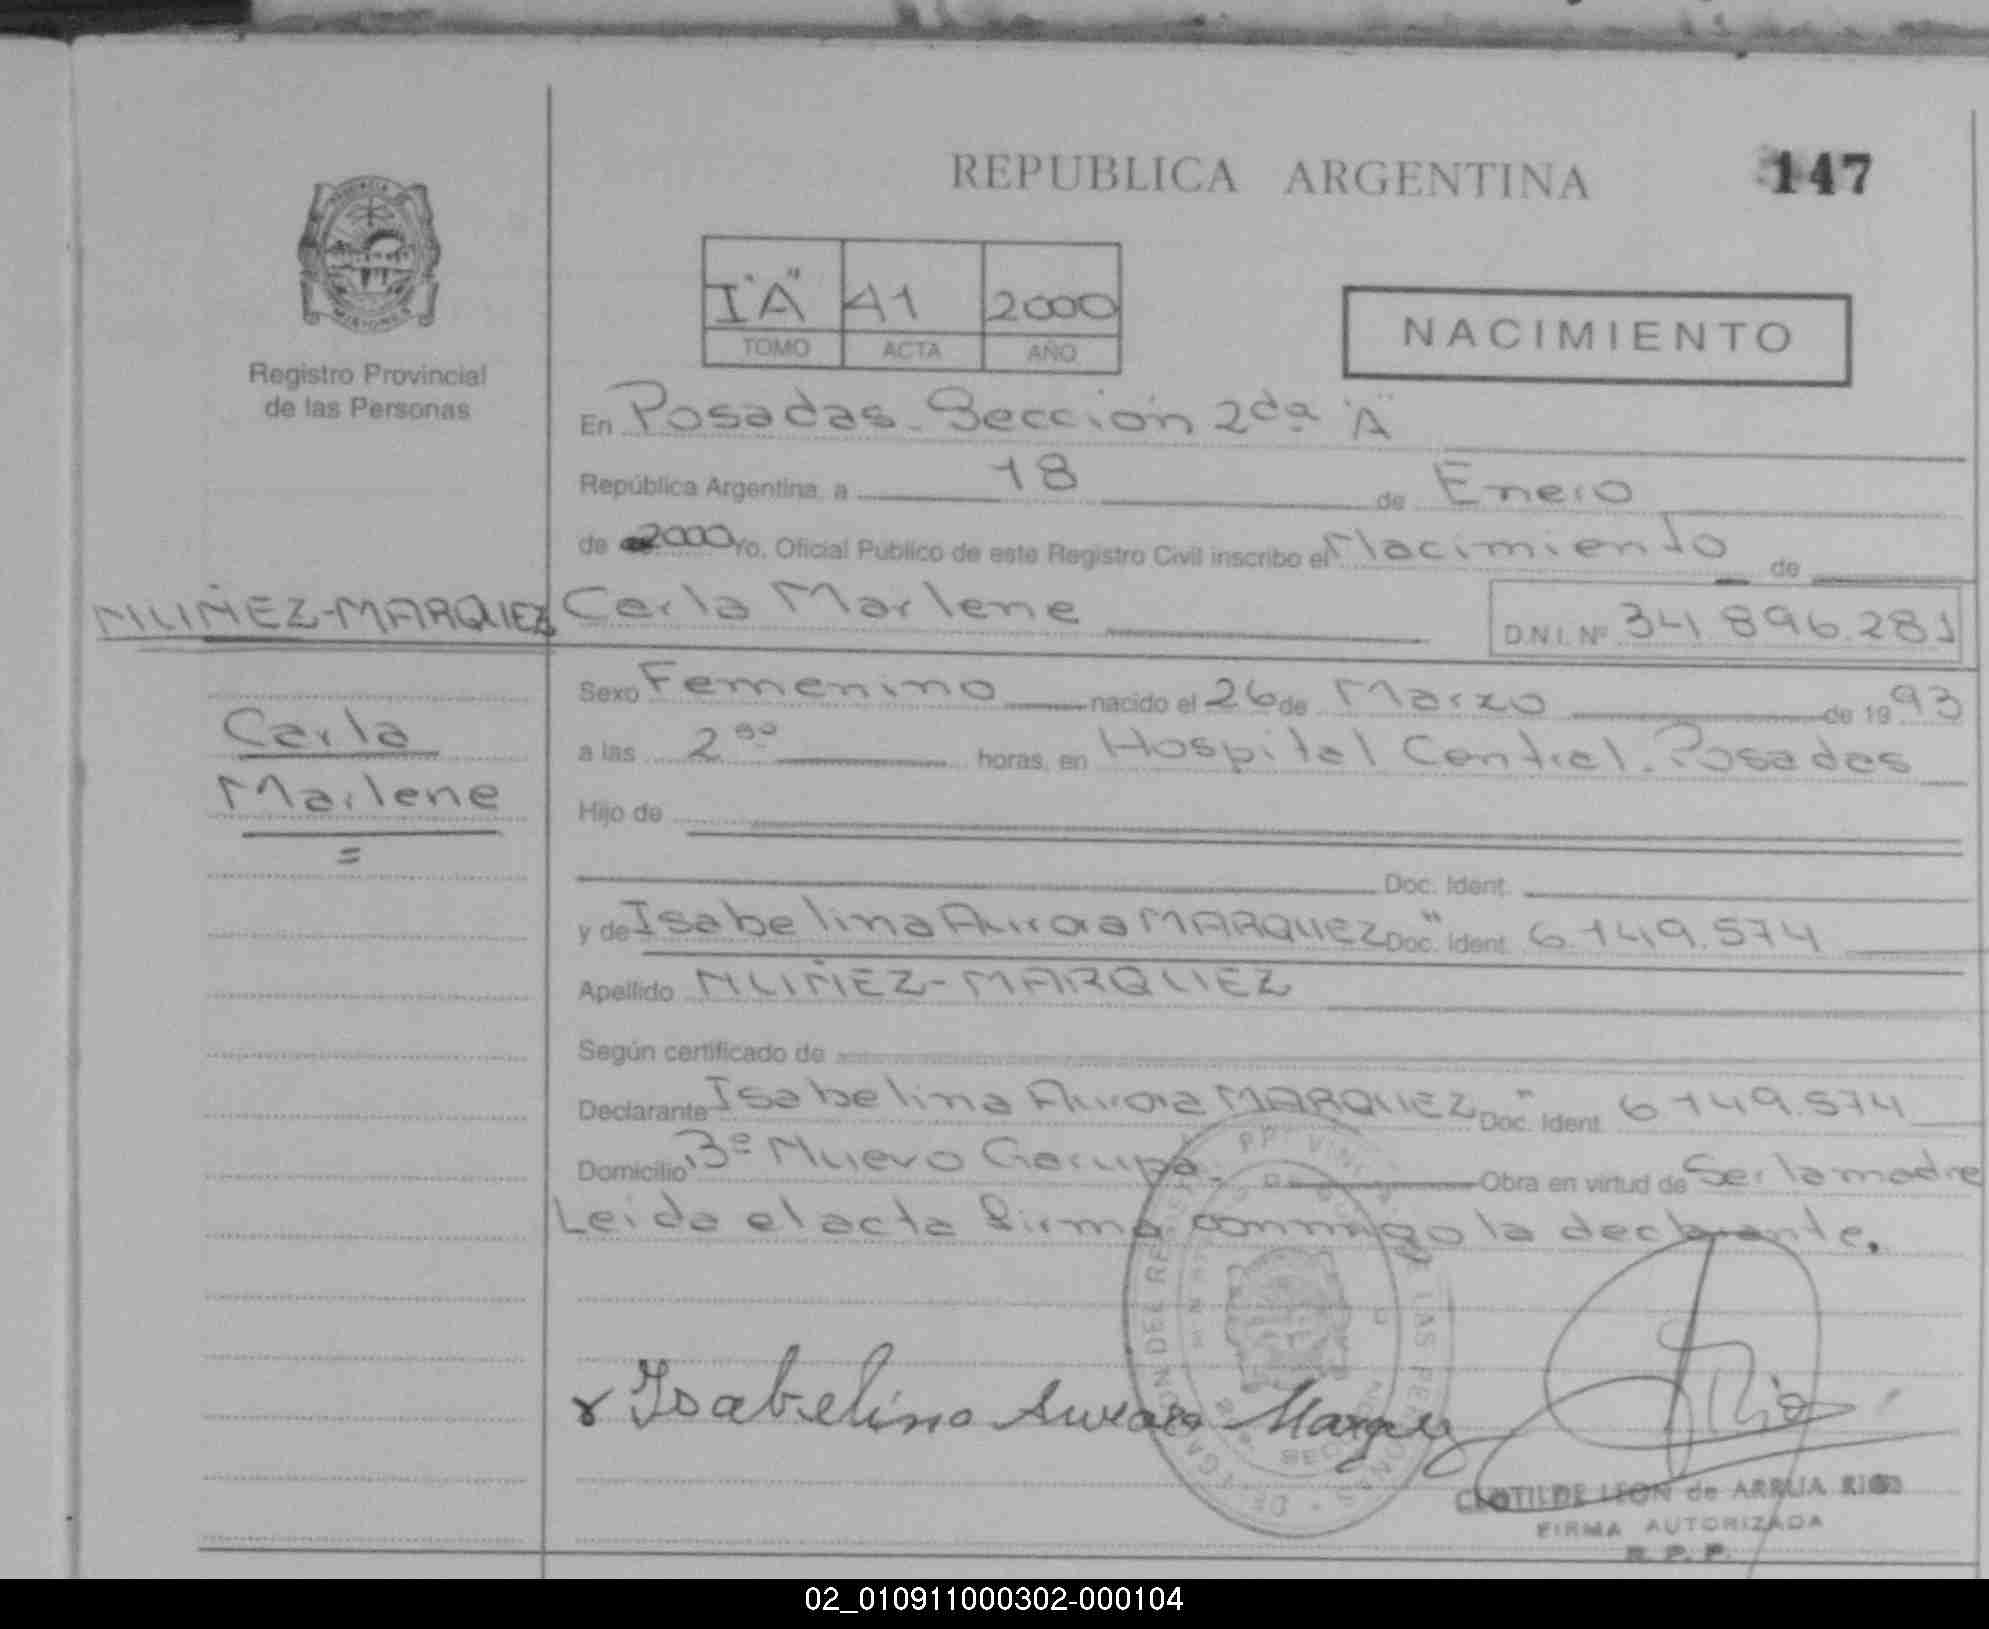 REPUBLICA ARGENTINA 147
PROVINCIA
MISIONES
Registro Provincial
de las Personas
I "A" 41 2000
TOMO ACTA AÑO
NACIMIENTO
En Posadas - Sección 2da "A"
República Argentina, a 18 de Enero
de 2000 Yo, Oficial Público de este Registro Civil inscribo el Nacimiento de
NUÑEZ-MARQUEZ Carla Marlene D.N.I. Nº 34.896.281
Sexo Femenino nacido el 26 de Marzo de 1993
Carla
a las 2ºº horas, en Hospital Central. Posadas
Marlene
Hijo de
=
Doc. Ident.
y de Isabelina Aurora MARQUEZ Doc. Ident. " 6.149.574
Apellido NUÑEZ-MARQUEZ
Según certificado de
Declarante Isabelina Aurora MARQUEZ Doc. Ident. " 6.149.574
Domicilio Bº Nuevo Garupa. Obra en virtud de Ser la madre
Leida el acta firma conmigo la declarante.
Isabelina Aurora Marquez
CLOTILDE LEON de ARRUA RIOS
FIRMA AUTORIZADA
R. P. P.
02_010911000302-000104